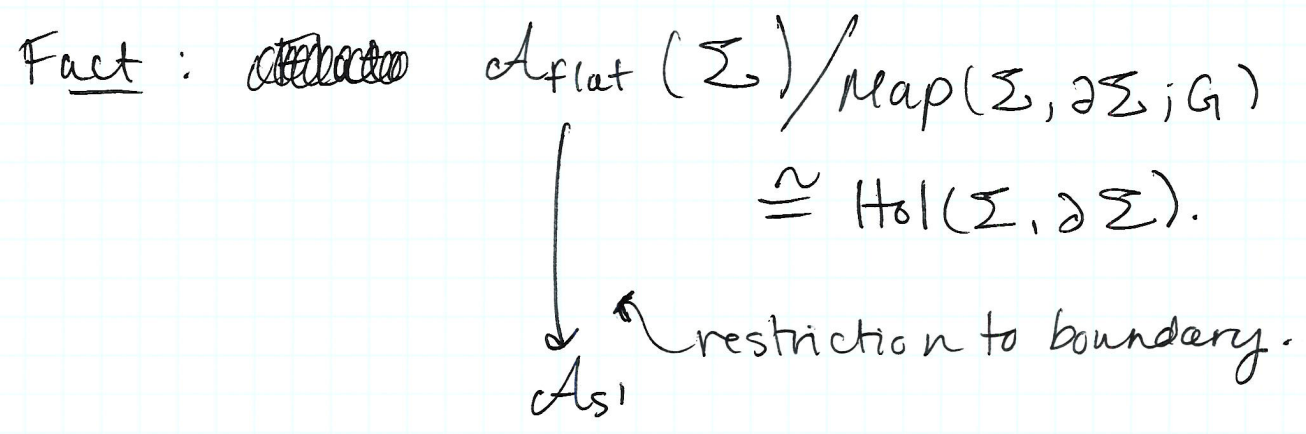 Fact : 𝒜flat (Σ)/Map(Σ, ∂Σ; G)
≅ Hol(Σ, ∂Σ).
restriction to boundary.
𝒜S¹